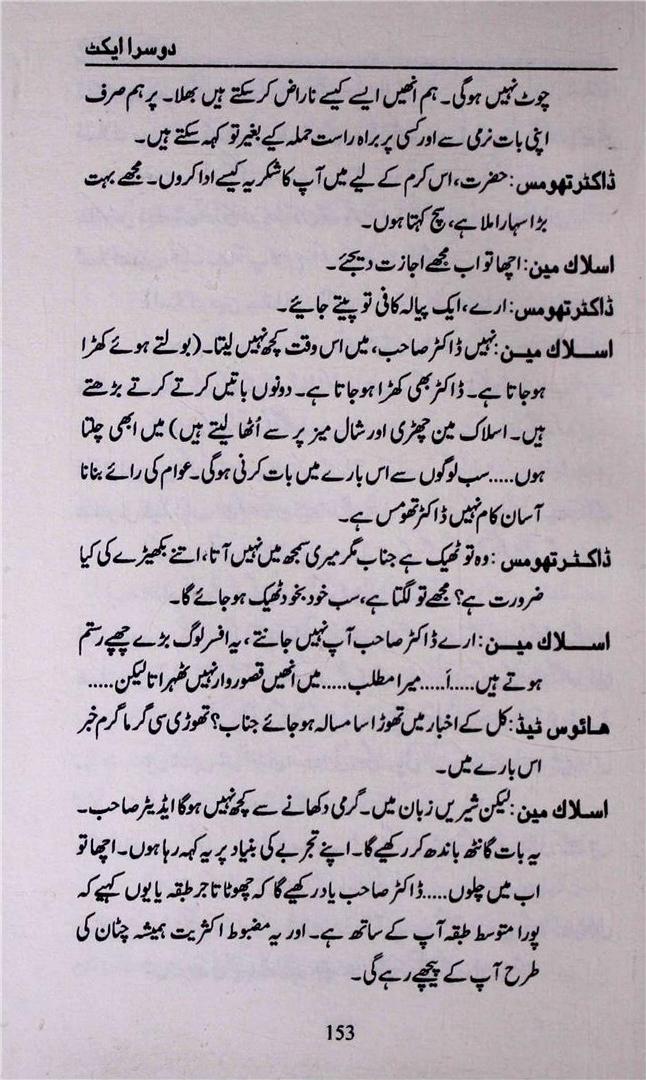 دوسرا ایکٹ
چوٹ نہیں ہوگی۔ ہم انھیں ایسے کیسے ناراض کر سکتے ہیں بھلا۔ پر ہم صرف
اپنی بات نرمی سے اور کسی پر براہ راست حملہ کیے بغیر تو کہہ سکتے ہیں۔
ڈاکٹر تھومس: حضرت، اس کرم کے لیے میں آپ کا شکریہ کیسے ادا کروں۔ مجھے بہت
بڑا سہارا ملا ہے، سچ کہتا ہوں۔
اسلاک مین: اچھا تو اب مجھے اجازت دیجئے۔
ڈاکٹر تھومس: ارے، ایک پیالہ کافی تو پیتے جائیے۔
اسلاک مین: نہیں ڈاکٹر صاحب، میں اس وقت کچھ نہیں لیتا۔ (بولتے ہوئے کھڑا
ہو جاتا ہے۔ ڈاکٹر بھی کھڑا ہو جاتا ہے۔ دونوں باتیں کرتے کرتے بڑھتے
ہیں۔ اسلاک مین چھڑی اور شال میز پر سے اُٹھا لیتے ہیں) میں ابھی چلتا
ہوں..... سب لوگوں سے اس بارے میں بات کرنی ہوگی۔ عوام کی رائے بنانا
آسان کام نہیں ڈاکٹر تھومس ہے۔
ڈاکٹر تھومس: وہ تو ٹھیک ہے جناب مگر میری سمجھ میں نہیں آتا، اتنے بکھیڑے کی کیا
ضرورت ہے؟ مجھے تو لگتا ہے، سب خود بخود ٹھیک ہو جائے گا۔
اسلاک مین: ارے ڈاکٹر صاحب آپ نہیں جانتے، یہ افسر لوگ بڑے چھپے رستم
ہوتے ہیں..... اَ..... میرا مطلب..... میں انھیں قصوروار نہیں ٹھہراتا لیکن.....
هائوس ٹیڈ: کل کے اخبار میں تھوڑا سا مسالہ ہو جائے جناب؟ تھوڑی سی گرما گرم خبر
اس بارے میں۔
اسلاک مین: لیکن شیریں زبان میں۔ گرمی دکھانے سے کچھ نہیں ہوگا ایڈیٹر صاحب۔
یہ بات گانٹھ باندھ کر رکھیے گا۔ اپنے تجربے کی بنیاد پر یہ کہہ رہا ہوں۔ اچھا تو
اب میں چلوں..... ڈاکٹر صاحب یاد رکھیے گا کہ چھوٹا تاجر طبقہ یا یوں کہیے کہ
پورا متوسط طبقہ آپ کے ساتھ ہے۔ اور یہ مضبوط اکثریت ہمیشہ چٹان کی
طرح آپ کے پیچھے رہے گی۔
153